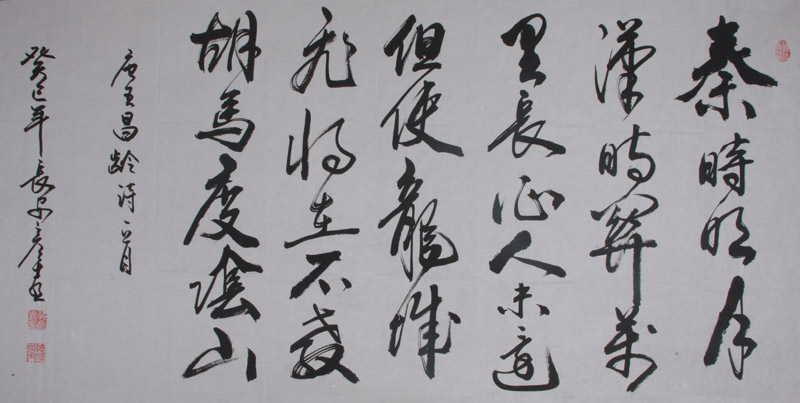 秦時明月
漢時關萬
里長征人未還
但使龍城
飛將在不教
胡馬度陰山
唐王昌齡詩一首
癸巳年